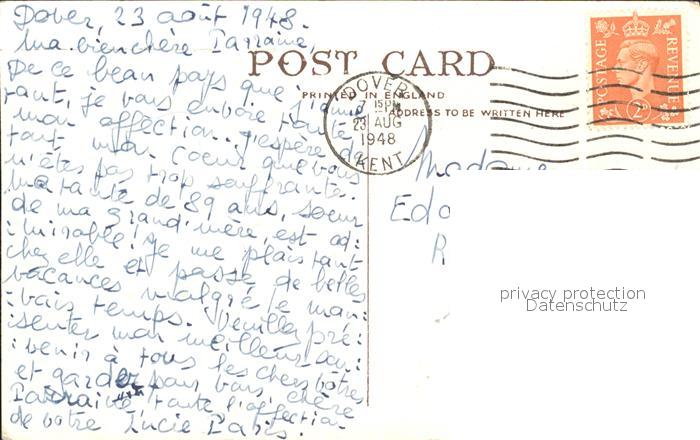 Dover, 23 août 1948.
Ma bien chère Parraine,
De ce beau pays que j'aime
tant, je vous envoie toute
mon affection. J'espère de
tout mon Coeur que vous
n'êtes pas trop souffrante.
Ma tante de 89 ans, soeur
de ma grand'mère, est ad:
:mirable! Je me plais tant
chez elle et passe de belles
vacances malgré le mau:
:vais temps. Veuillez pré:
:senter mon meilleur sou:
:venir à tous les chers vôtres
et garder pour vous, chère
Parraine, toute l'affection
de votre Lucie Paris.
POST CARD
PRINTED IN ENGLAND
ADDRESS TO BE WRITTEN HERE
DOVER
7 15PM
23 AUG
1948
KENT
POSTAGE
REVENUE
2D
Madame
Edo
R
privacy protection
Datenschutz